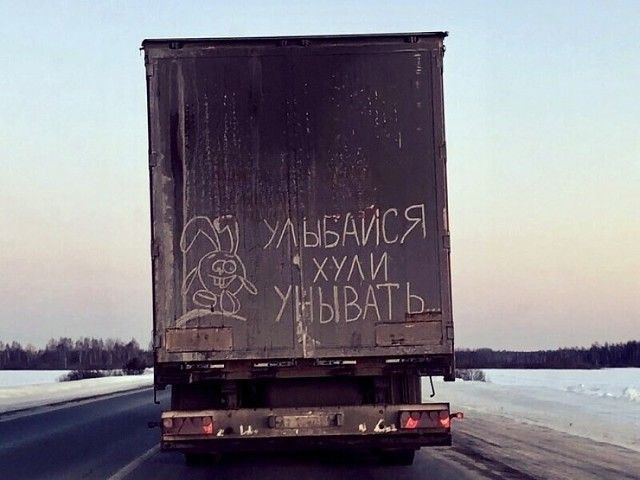 УЛЫБАЙСЯ
ХУЛИ
УНЫВАТЬ